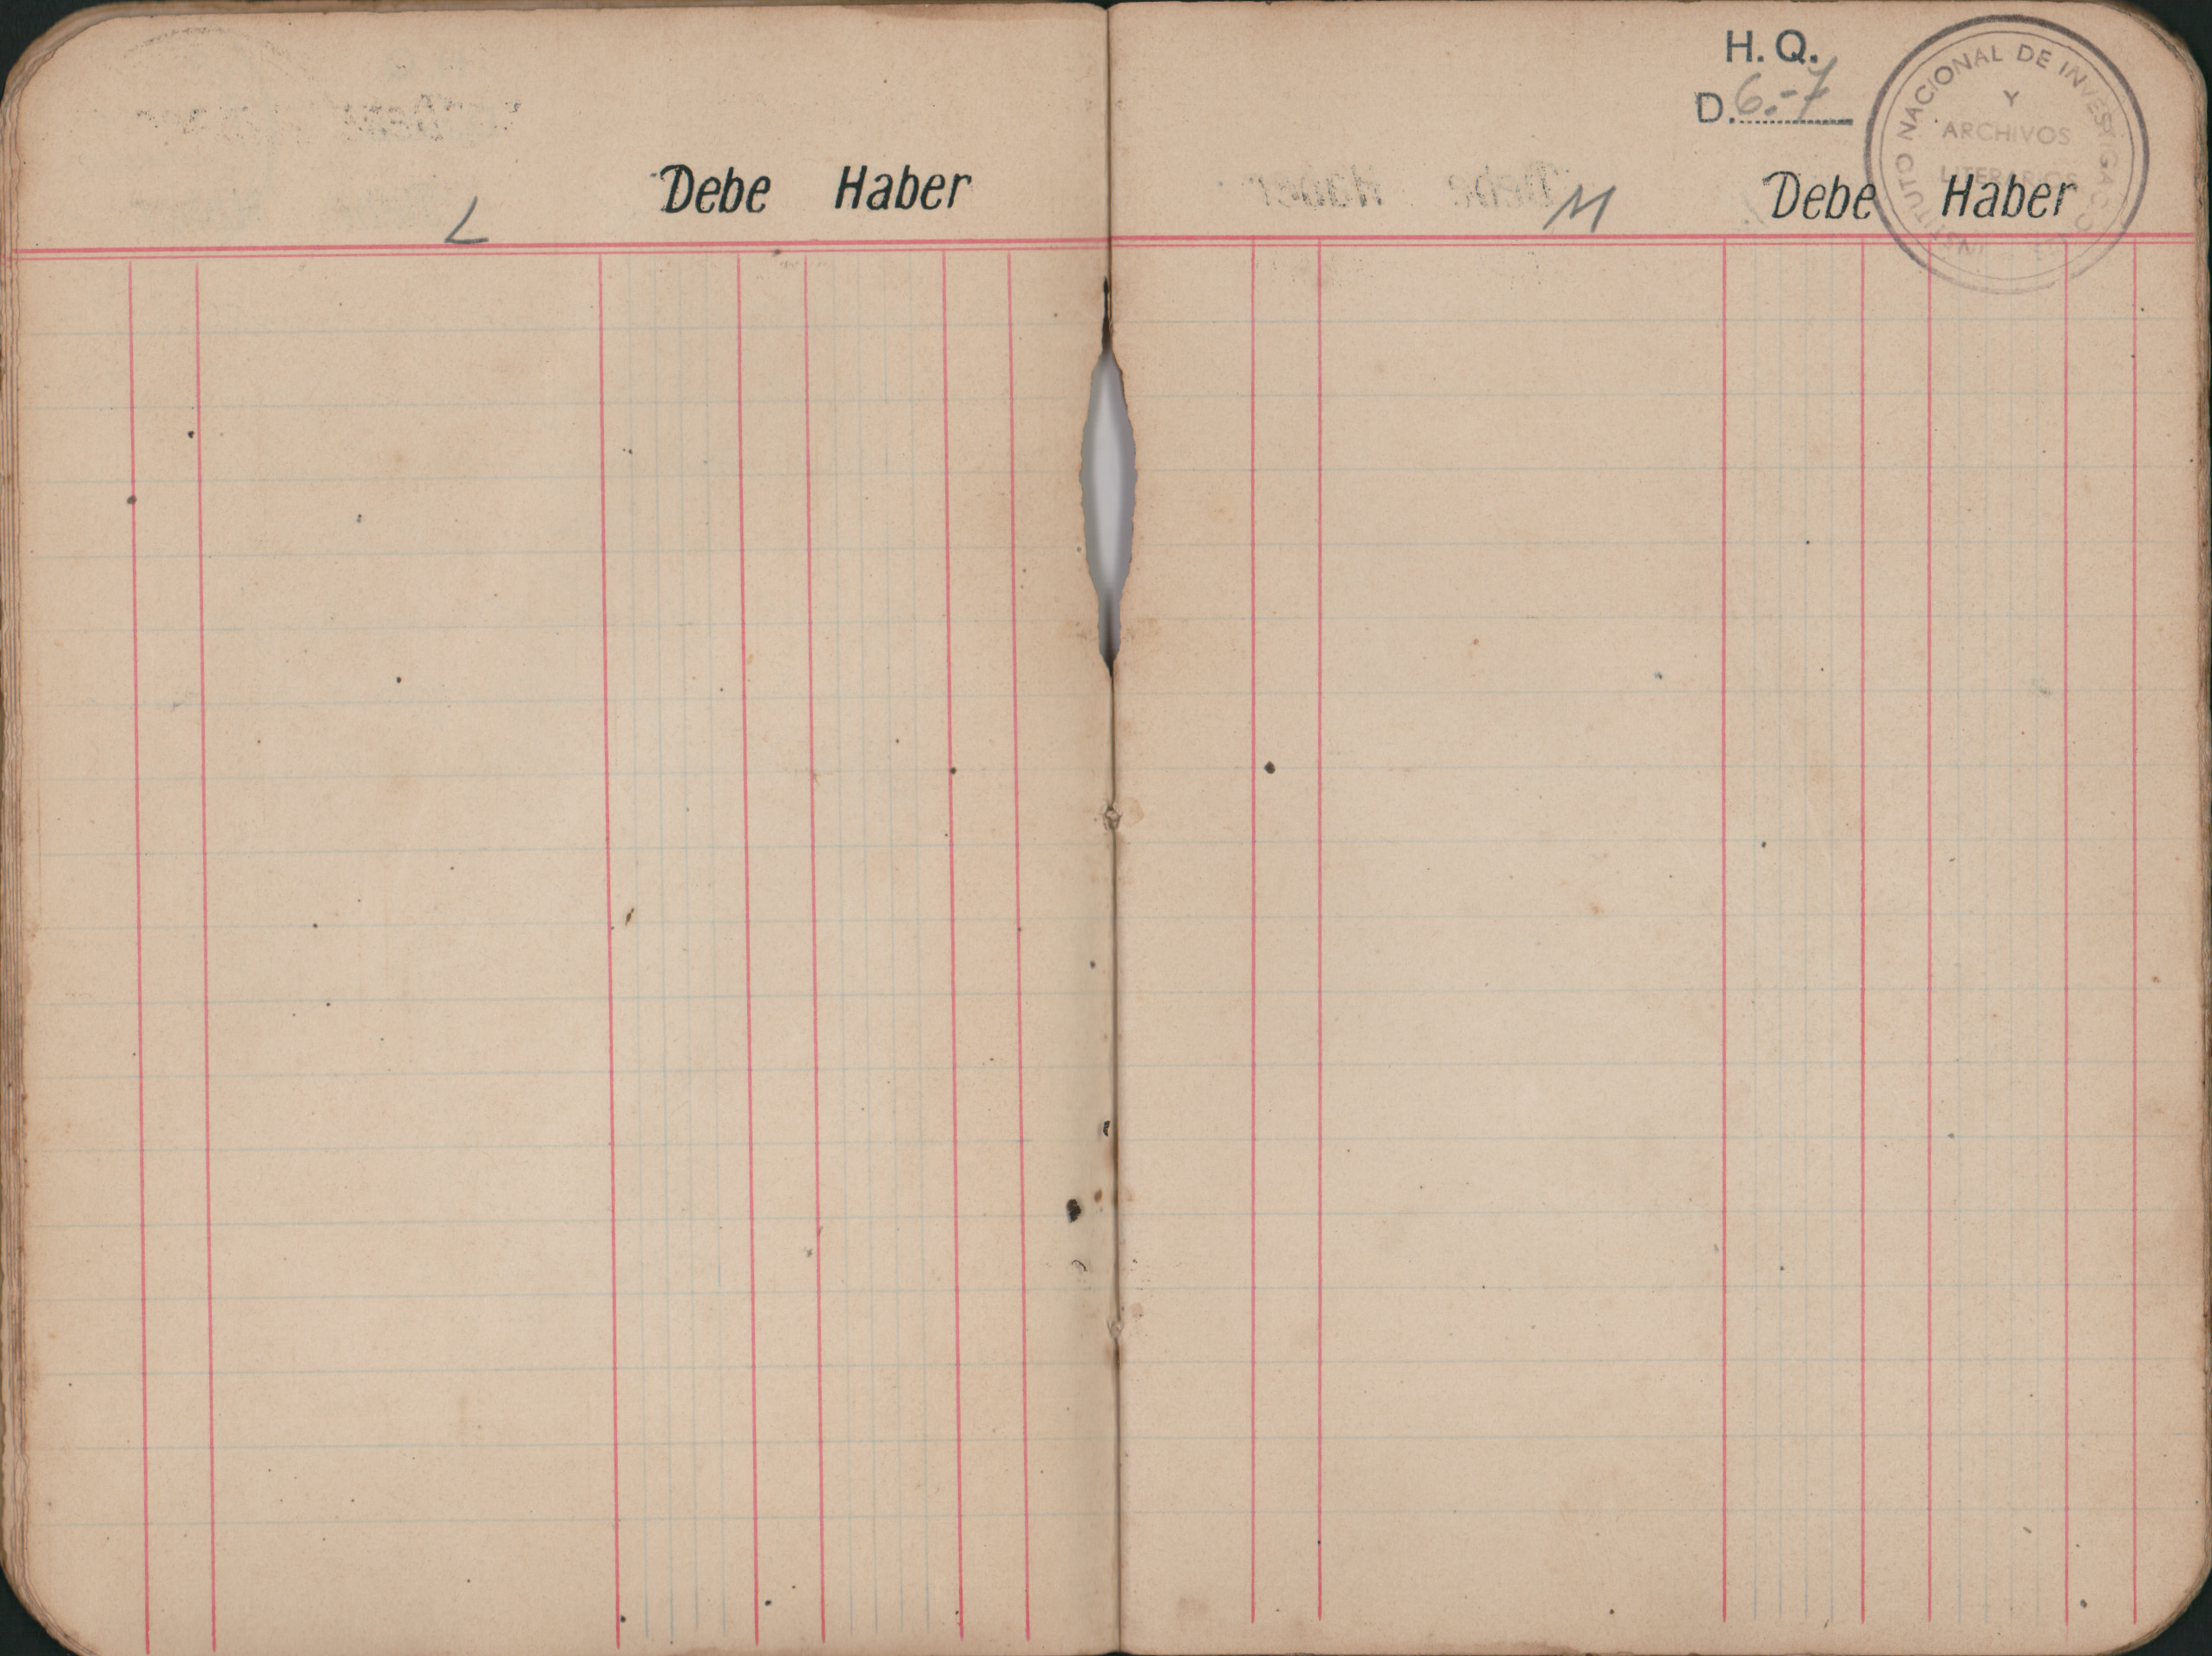 L
Debe Haber
H. Q.
D. 6.-7
M
Debe Haber
INSTITUTO NACIONAL DE INVESTIGACIONES
Y
ARCHIVOS
LITERARIOS